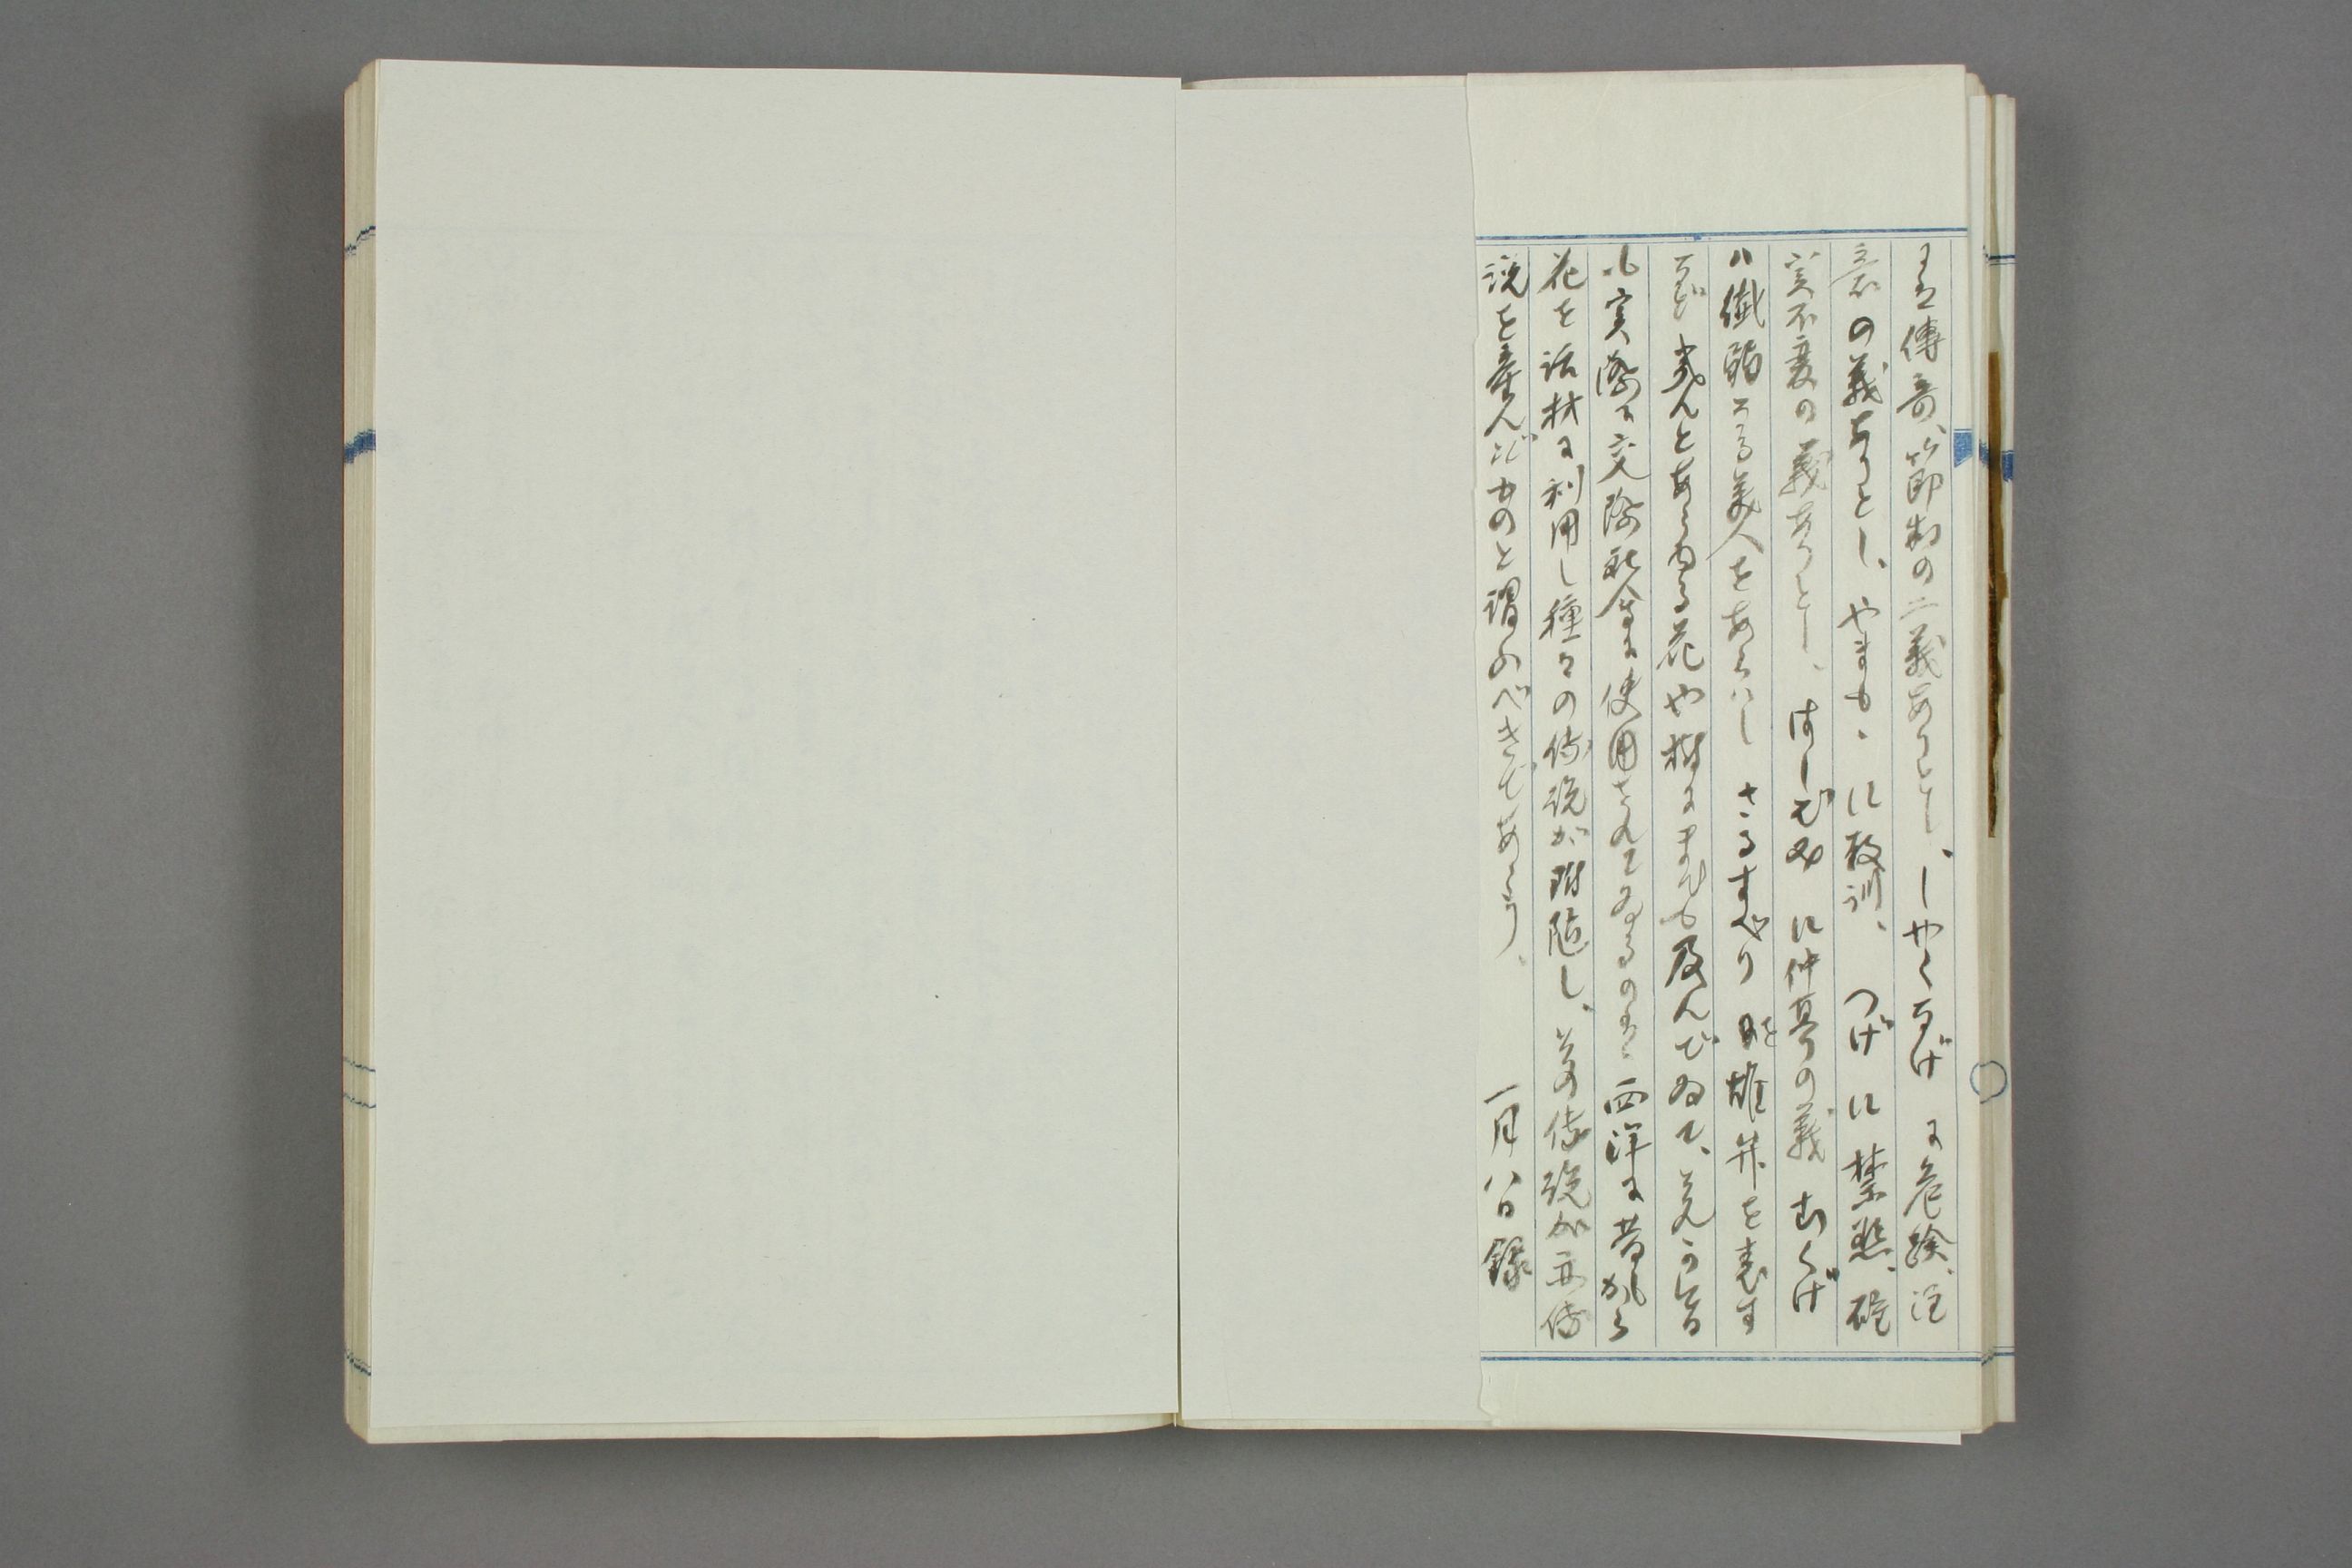 傳奇、節制の二義ありとし、しやくなげ に危険、注
意の義ありとし、やまもゝに教訓、 つげ に禁慾、確
実不変の義ありとし、はしばみ に仲直りの義 むくげ
ハ繊弱なる美人をあらハし さるすべり を雄弁を表す
など 殆んとあらゆる花や樹にまでも及んでゐて、
も実際に交際社会等に使用されてゐるのは、西洋に昔から
花を話材に利用し種々の伝説が附随し、其の伝説が亦伝
説を産んだものと謂ふべきであらう、
一月八日録